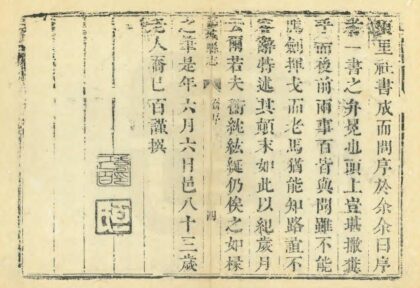 里社書成而問序於余余曰序
者一書之弁冕也頭上豈堪撒糞
乎而後前兩事百皆與聞雖不能
劍揮戈而老馬猶能知路誼不
容辭特述其顛末如此以紀歲月
云爾若夫衡紞紘綖仍俟之如椽
城縣志
序
四
之筆是年六月六日邑八十三歲
老人喬巳百謹撰